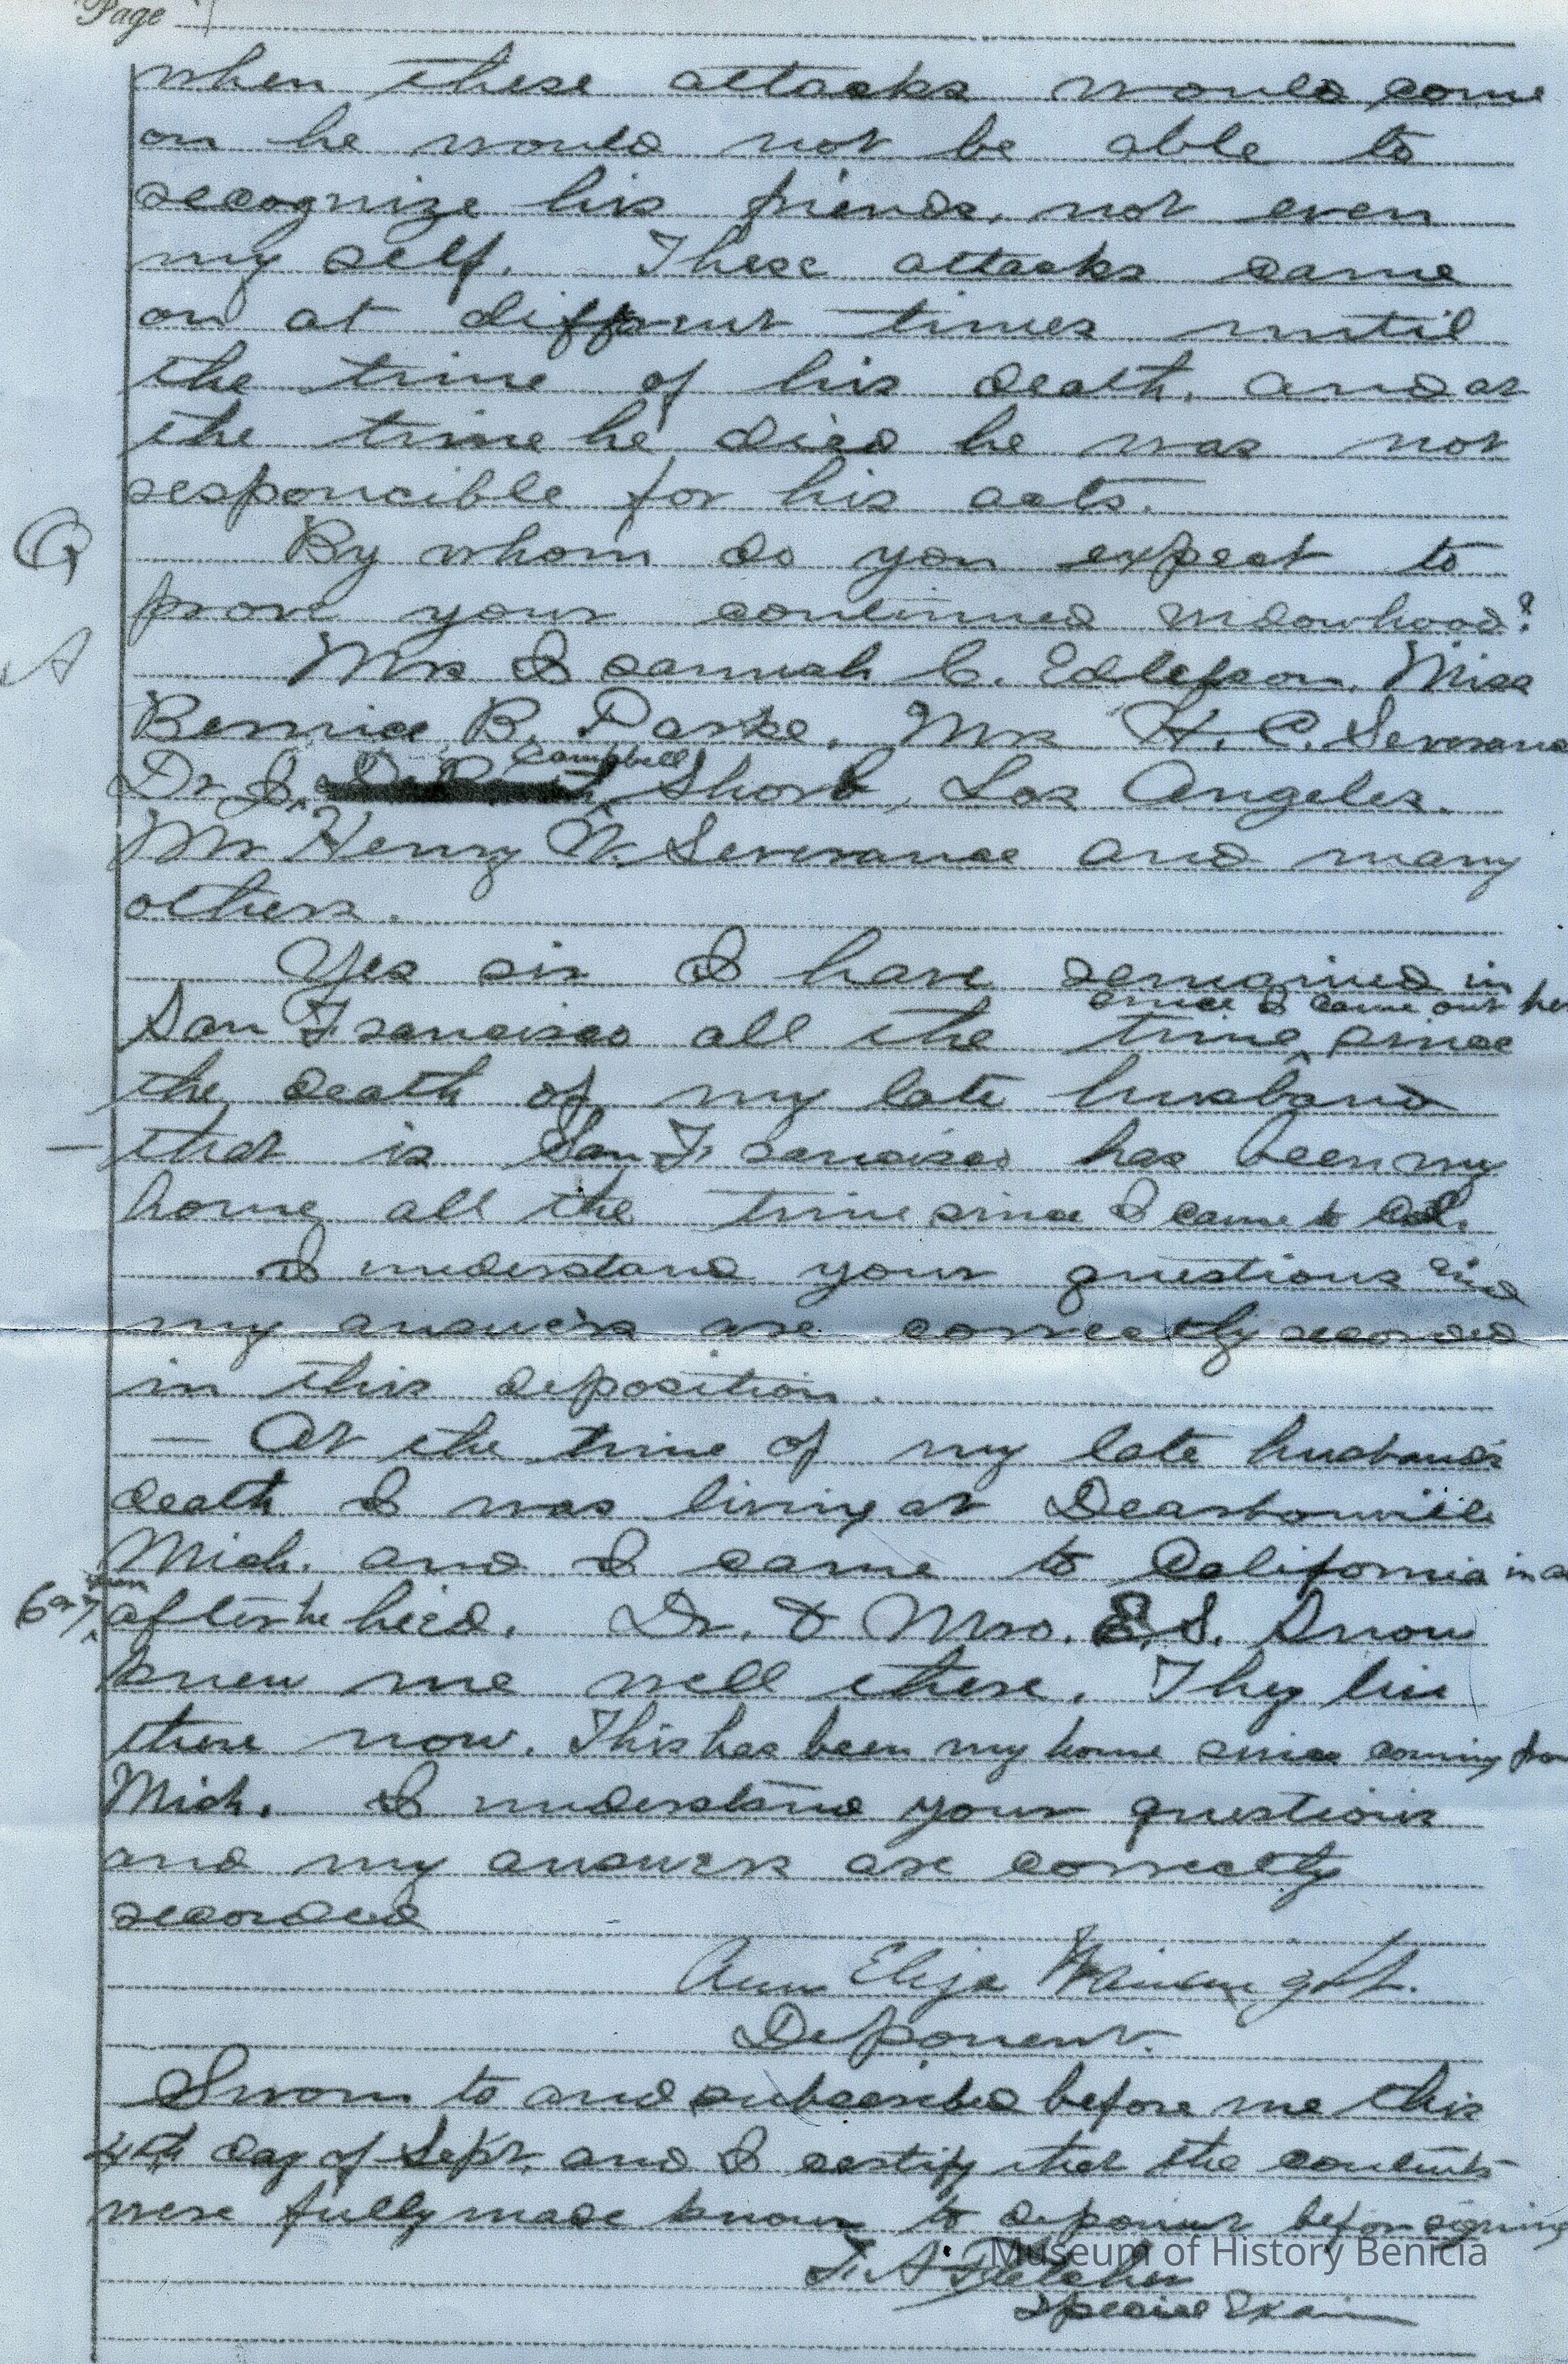 Page
when these attacks would come
on he would not be able to
recognize his friends, not even
my self. These attacks came
on at different times until
the time of his death, and at
the time he died he was not
responcible for his acts.
Q By whom do you expect to
prove your continued widowhood?
A Mrs Hannah C. Edlefson, Miss
Bernice B. Parke, Mrs H. C. Severance
Dr J. Campbell Shorb, Los Angeles.
Mr Henry W. Severance and many
others.
Yes sir I have remained in
since I came out here
San Francisco all the time since
the death of my late husband
— that is San Francisco has been my
home all the time since I came to Cal.
I understand your questions and
my answers are correctly recorded
in this deposition.
— At the time of my late husband's
death I was living at Dearbornville
Mich. and I came to California in
6 or 7
after he died. Dr. & Mrs. E. S. Snow
knew me well there. They live
there now. This has been my home since coming from
Mich. I understand your questions
and my answers are correctly
recorded
Ann Eliza Wainwright.
Deponent.
Sworn to and subscribed before me this
4th day of Sept. and I certify that the contents
were fully made known to deponent before signing
T. A. Fletcher
Special Exam
Museum of History Benicia